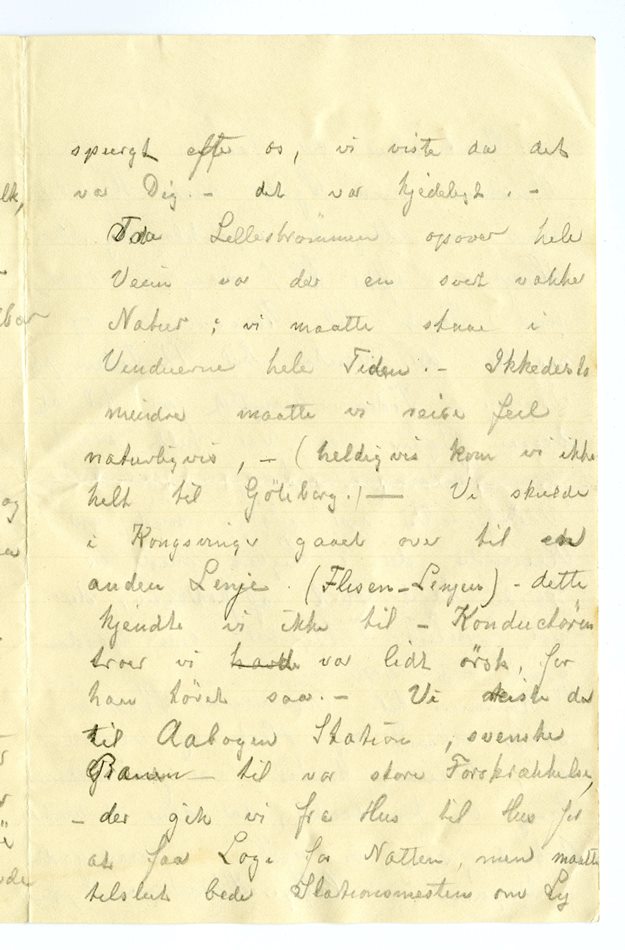 spurgt efter os, vi viste da det
var Dig. – det var kjedeligt. –
Fra Lillestrømmen opover hele
Veien var der en svert vakker
Natur; vi maatte staae i
Vinduerne hele Tiden. – Ikkedesto
mindre maatte vi reise feil
naturligvis, – (heldigvis kom vi ikke
helt til Göteborg.) — Vi skulde
i Kongsvinger gaaet over til en
anden Lenje. (Flisen-Lenjen) – dette
kjendte vi ikke til – Konductören
troer vi havde var lidt örsk, for
han saa. – Vi reiste da
til Aabogen Station, svenske
Grænsen – til vor store Forskrækkelse,
– der gik vi fra Hus til Hus for
at faa Logi for Natten, men maatte
tilslut bede Stationsmesteren om Ly